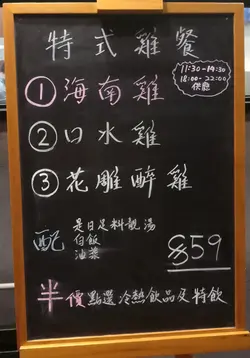 特式雞餐
① 海南雞
11:30-14:30
18:00-22:00
供應
② 口水雞
③ 花雕醉雞
配
是日足料靚湯
白飯
油菜
$59
半價點選冷熱飲品及特飲